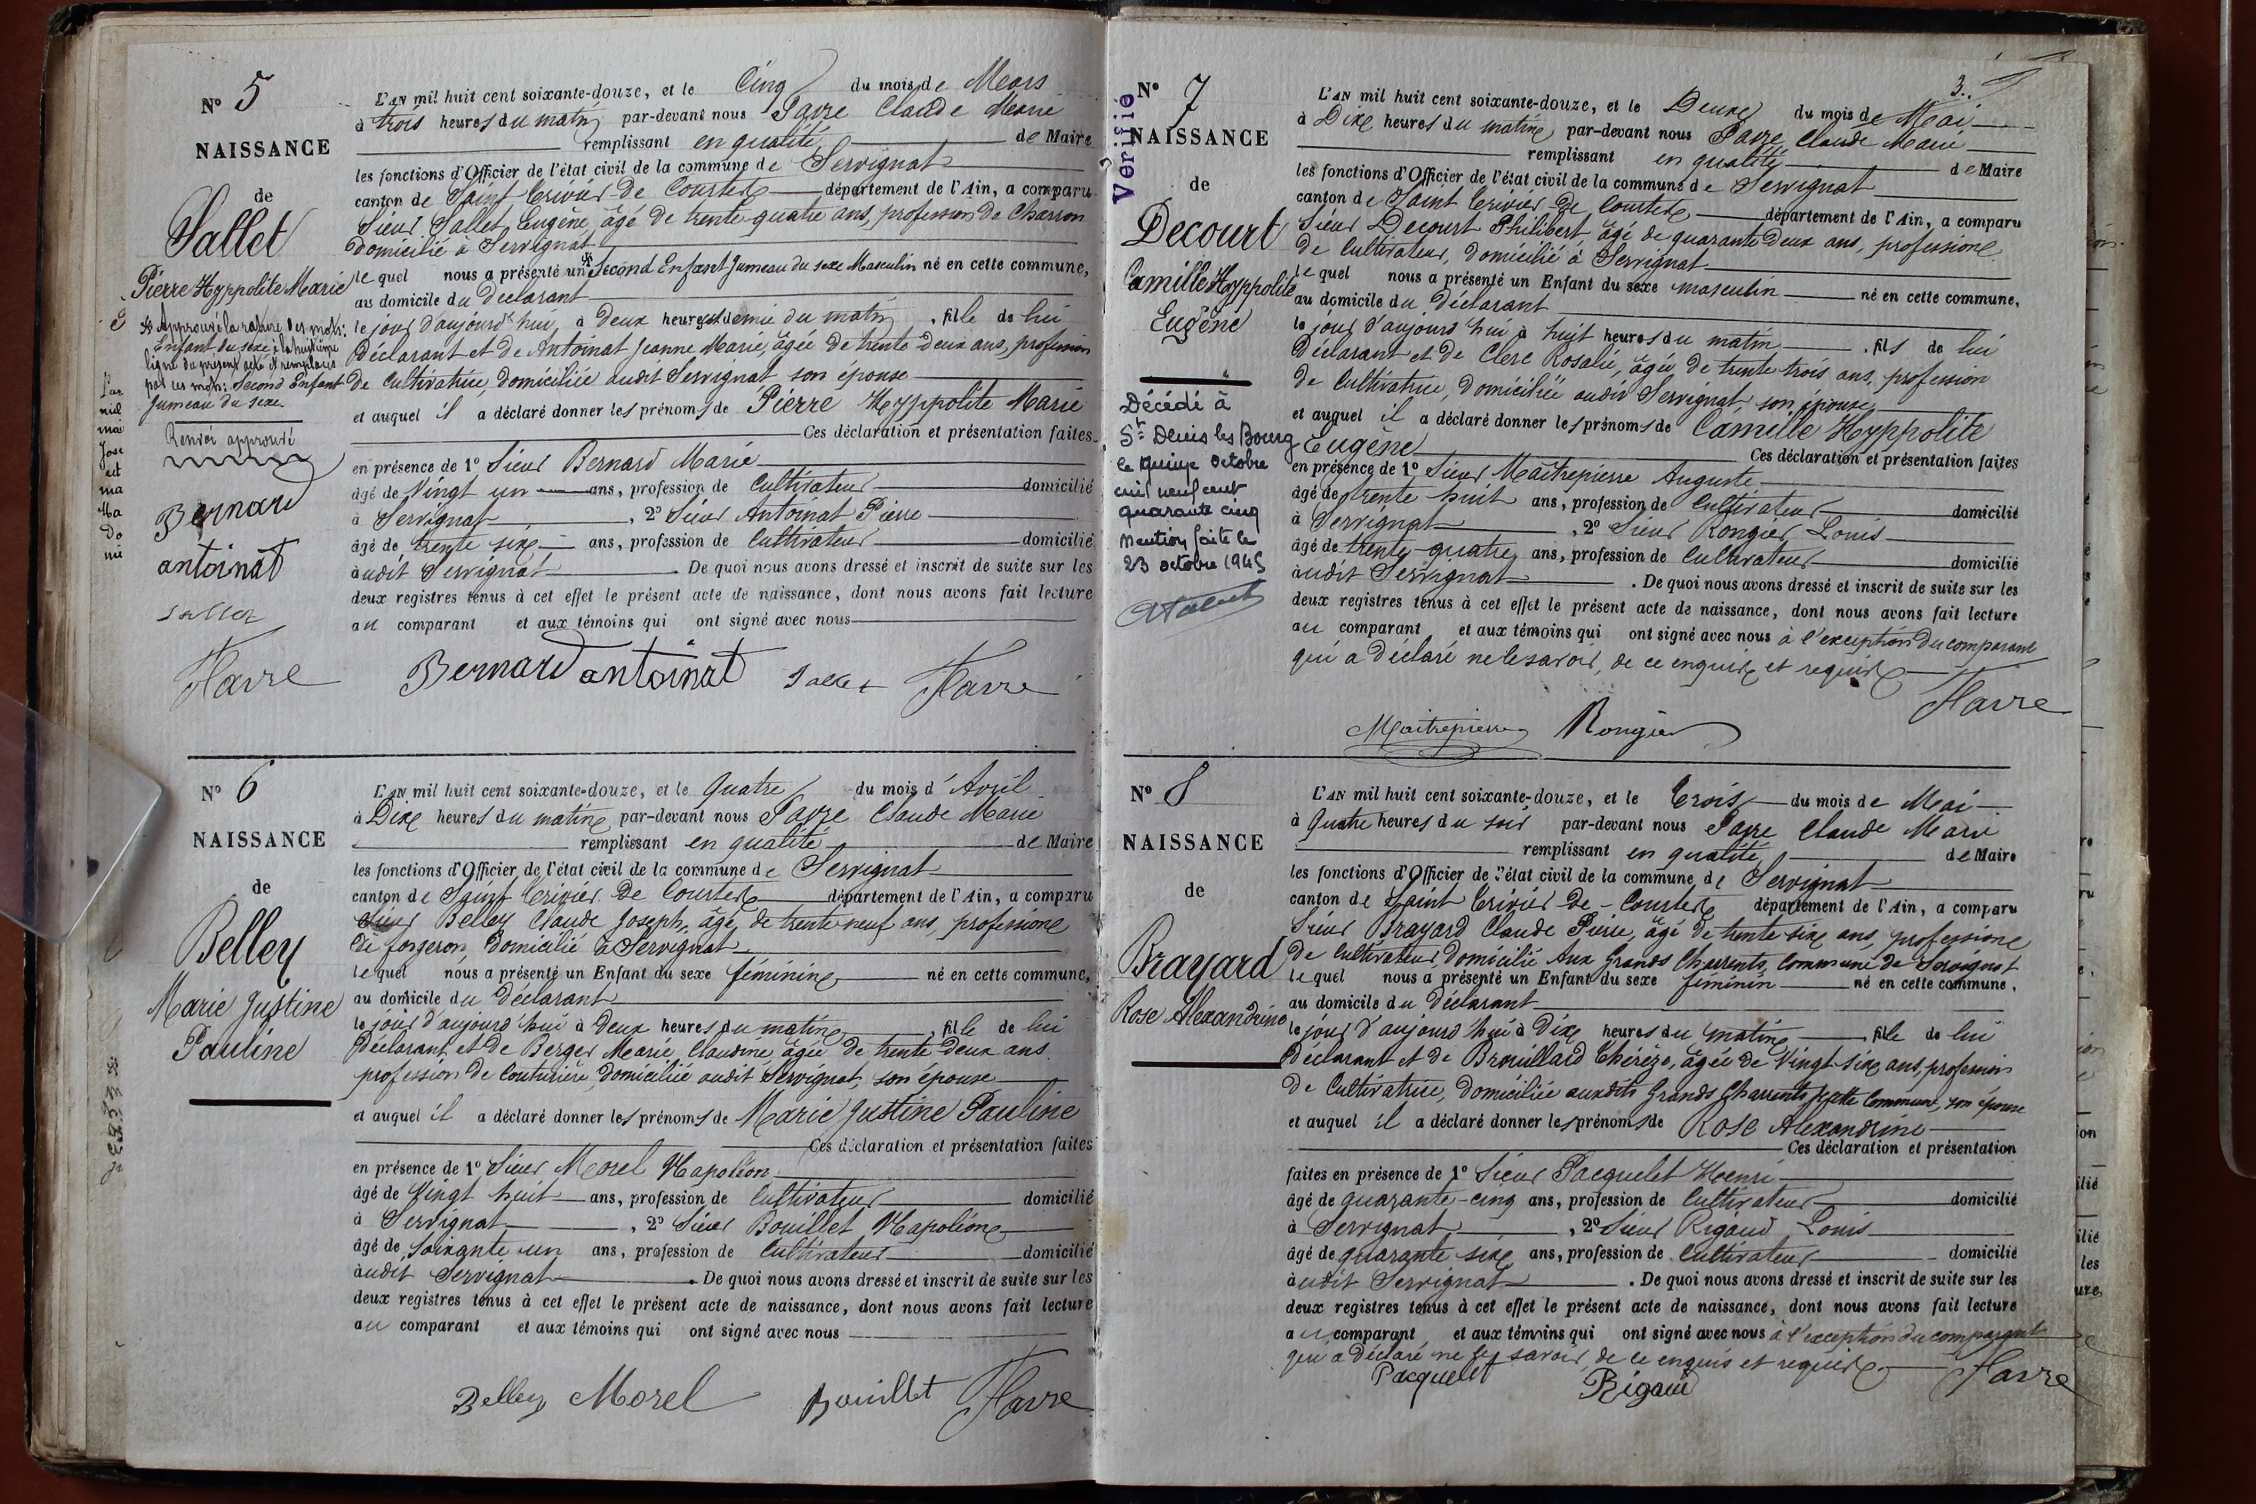 N° 5
NAISSANCE
de
Sallet
Pierre Hyppolite Marie
Approuvé la rature des mots:
Enfant du sexe à la huitième
ligne du présent acte et remplacés
par ces mots: Second Enfant
Jumeau du sexe.
Renvoi approuvé
Bernard
antoinat
Sallet
Favre
L'AN mil huit cent soixante-douze, et le Cinq du mois de Mars
à trois heures du matin par-devant nous Favre Claude Marie
remplissant en qualité de Maire
les fonctions d'Officier de l'état civil de la commune de Servignat
canton de Saint Trivier de Courtes département de l'Ain, a comparu
Sieur Sallet Eugène, âgé de trente-quatre ans, profession de Charron
domicilié à Servignat
lequel nous a présenté un Second Enfant Jumeau du sexe Masculin né en cette commune,
au domicile du Déclarant
le jour d'aujourd'hui, à Deux heures et demie du matin, fils de lui
Déclarant et de Antoinat Jeanne Marie, âgée de trente deux ans, profession
de Cultivatrice, domiciliée audit Servignat son épouse
et auquel il a déclaré donner les prénoms de Pierre Hyppolite Marie
Ces déclaration et présentation faites
en présence de 1° Sieur Bernard Marie
âgé de Vingt un ans, profession de Cultivateur domicilié
à Servignat, 2° Sieur Antoinat Pierre
âgé de trente six ans, profession de Cultivateur domicilié
audit Servignat. De quoi nous avons dressé et inscrit de suite sur les
deux registres tenus à cet effet le présent acte de naissance, dont nous avons fait lecture
au comparant et aux témoins qui ont signé avec nous
Bernard antoinat Sallet Favre
N° 6
NAISSANCE
de
Belley
Marie Justine
Pauline
L'AN mil huit cent soixante-douze, et le Quatre du mois d'Avril
à Dix heures du matin par-devant nous Favre Claude Marie
remplissant en qualité de Maire
les fonctions d'Officier de l'état civil de la commune de Servignat
canton de Saint Trivier de Courtes département de l'Ain, a comparu
Sieur Belley Claude Joseph, âgé de trente neuf ans, profession
de forgeron, domicilié à Servignat
lequel nous a présenté un Enfant du sexe féminin né en cette commune,
au domicile du Déclarant
le jour d'aujourd'hui à Deux heures du matin, fille de lui
Déclarant et de Berger Marie Claudine âgée de trente deux ans
profession de Couturière domiciliée audit Servignat, son épouse
et auquel il a déclaré donner les prénoms de Marie Justine Pauline
Ces déclaration et présentation faites
en présence de 1° Sieur Morel Napoléon
âgé de Vingt huit ans, profession de Cultivateur domicilié
à Servignat, 2° Sieur Bouillet Napoléon
âgé de soixante un ans, profession de Cultivateur domicilié
audit Servignat. De quoi nous avons dressé et inscrit de suite sur les
deux registres tenus à cet effet le présent acte de naissance, dont nous avons fait lecture
au comparant et aux témoins qui ont signé avec nous
Belley Morel Bouillet Favre
3.
Vérifié
N° 7
NAISSANCE
de
Decourt
Camille Hyppolite
Eugène
Décédé à
St Denis les Bourg
le quinze octobre
mil neuf cent
quarante cinq
Mention faite le
23 octobre 1945
L'AN mil huit cent soixante-douze, et le Deux du mois de Mai
à Dix heures du matin, par-devant nous Favre Claude Marie
remplissant en qualité de Maire
les fonctions d'Officier de l'état civil de la commune de Servignat
canton de Saint Trivier de Courtes département de l'Ain, a comparu
Sieur Decourt Philibert âgé de quarante deux ans, profession
de Cultivateur, domicilié à Servignat
lequel nous a présenté un Enfant du sexe masculin né en cette commune,
au domicile du Déclarant
le jour d'aujourd'hui à huit heures du matin, fils de lui
Déclarant et de Clerc Rosalie, âgée de trente trois ans, profession
de Cultivatrice, domiciliée audit Servignat, son épouse
et auquel il a déclaré donner les prénoms de Camille Hyppolite
Eugène Ces déclaration et présentation faites
en présence de 1° Sieur Maitrepierre Auguste
âgé de trente huit ans, profession de Cultivateur domicilié
à Servignat, 2° Sieur Rongier Louis
âgé de trente-quatre ans, profession de Cultivateur domicilié
audit Servignat. De quoi nous avons dressé et inscrit de suite sur les
deux registres tenus à cet effet le présent acte de naissance, dont nous avons fait lecture
au comparant et aux témoins qui ont signé avec nous à l'exception du comparant
qui a déclaré ne le savoir, de ce enquis et requis
Favre
Maitrepierre Rongier
N° 8
NAISSANCE
de
Brayard
Rose Alexandrine
L'AN mil huit cent soixante-douze, et le Trois du mois de Mai
à Quatre heures du soir par-devant nous Favre Claude Marie
remplissant en qualité de Maire
les fonctions d'Officier de l'état civil de la commune de Servignat
canton de Saint Trivier de-Courtes département de l'Ain, a comparu
Sieur Brayard Claude Pierre, âgé de trente six ans, profession
de Cultivateur domicilié aux Grands Charrents, Commune de Servignat
lequel nous a présenté un Enfant du sexe féminin né en cette commune,
au domicile du Déclarant
le jour d'aujourd'hui à Dix heures du matin, fille de lui
Déclarant et de Brouillard Thérèze, âgée de Vingt six ans, profession
de Cultivatrice, domiciliée auxdits Grands Charrents, Commune, son épouse
et auquel il a déclaré donner les prénoms de Rose Alexandrine
Ces déclaration et présentation
faites en présence de 1° Sieur Pacquelet Henri
âgé de quarante-cinq ans, profession de Cultivateur domicilié
à Servignat, 2° Sieur Rigaud Louis
âgé de quarante six ans, profession de Cultivateur domicilié
audit Servignat. De quoi nous avons dressé et inscrit de suite sur les
deux registres tenus à cet effet le présent acte de naissance, dont nous avons fait lecture
au comparant et aux témoins qui ont signé avec nous à l'exception du comparant
qui a déclaré ne le savoir de ce enquis et requis
Pacquelet Rigaud Favre